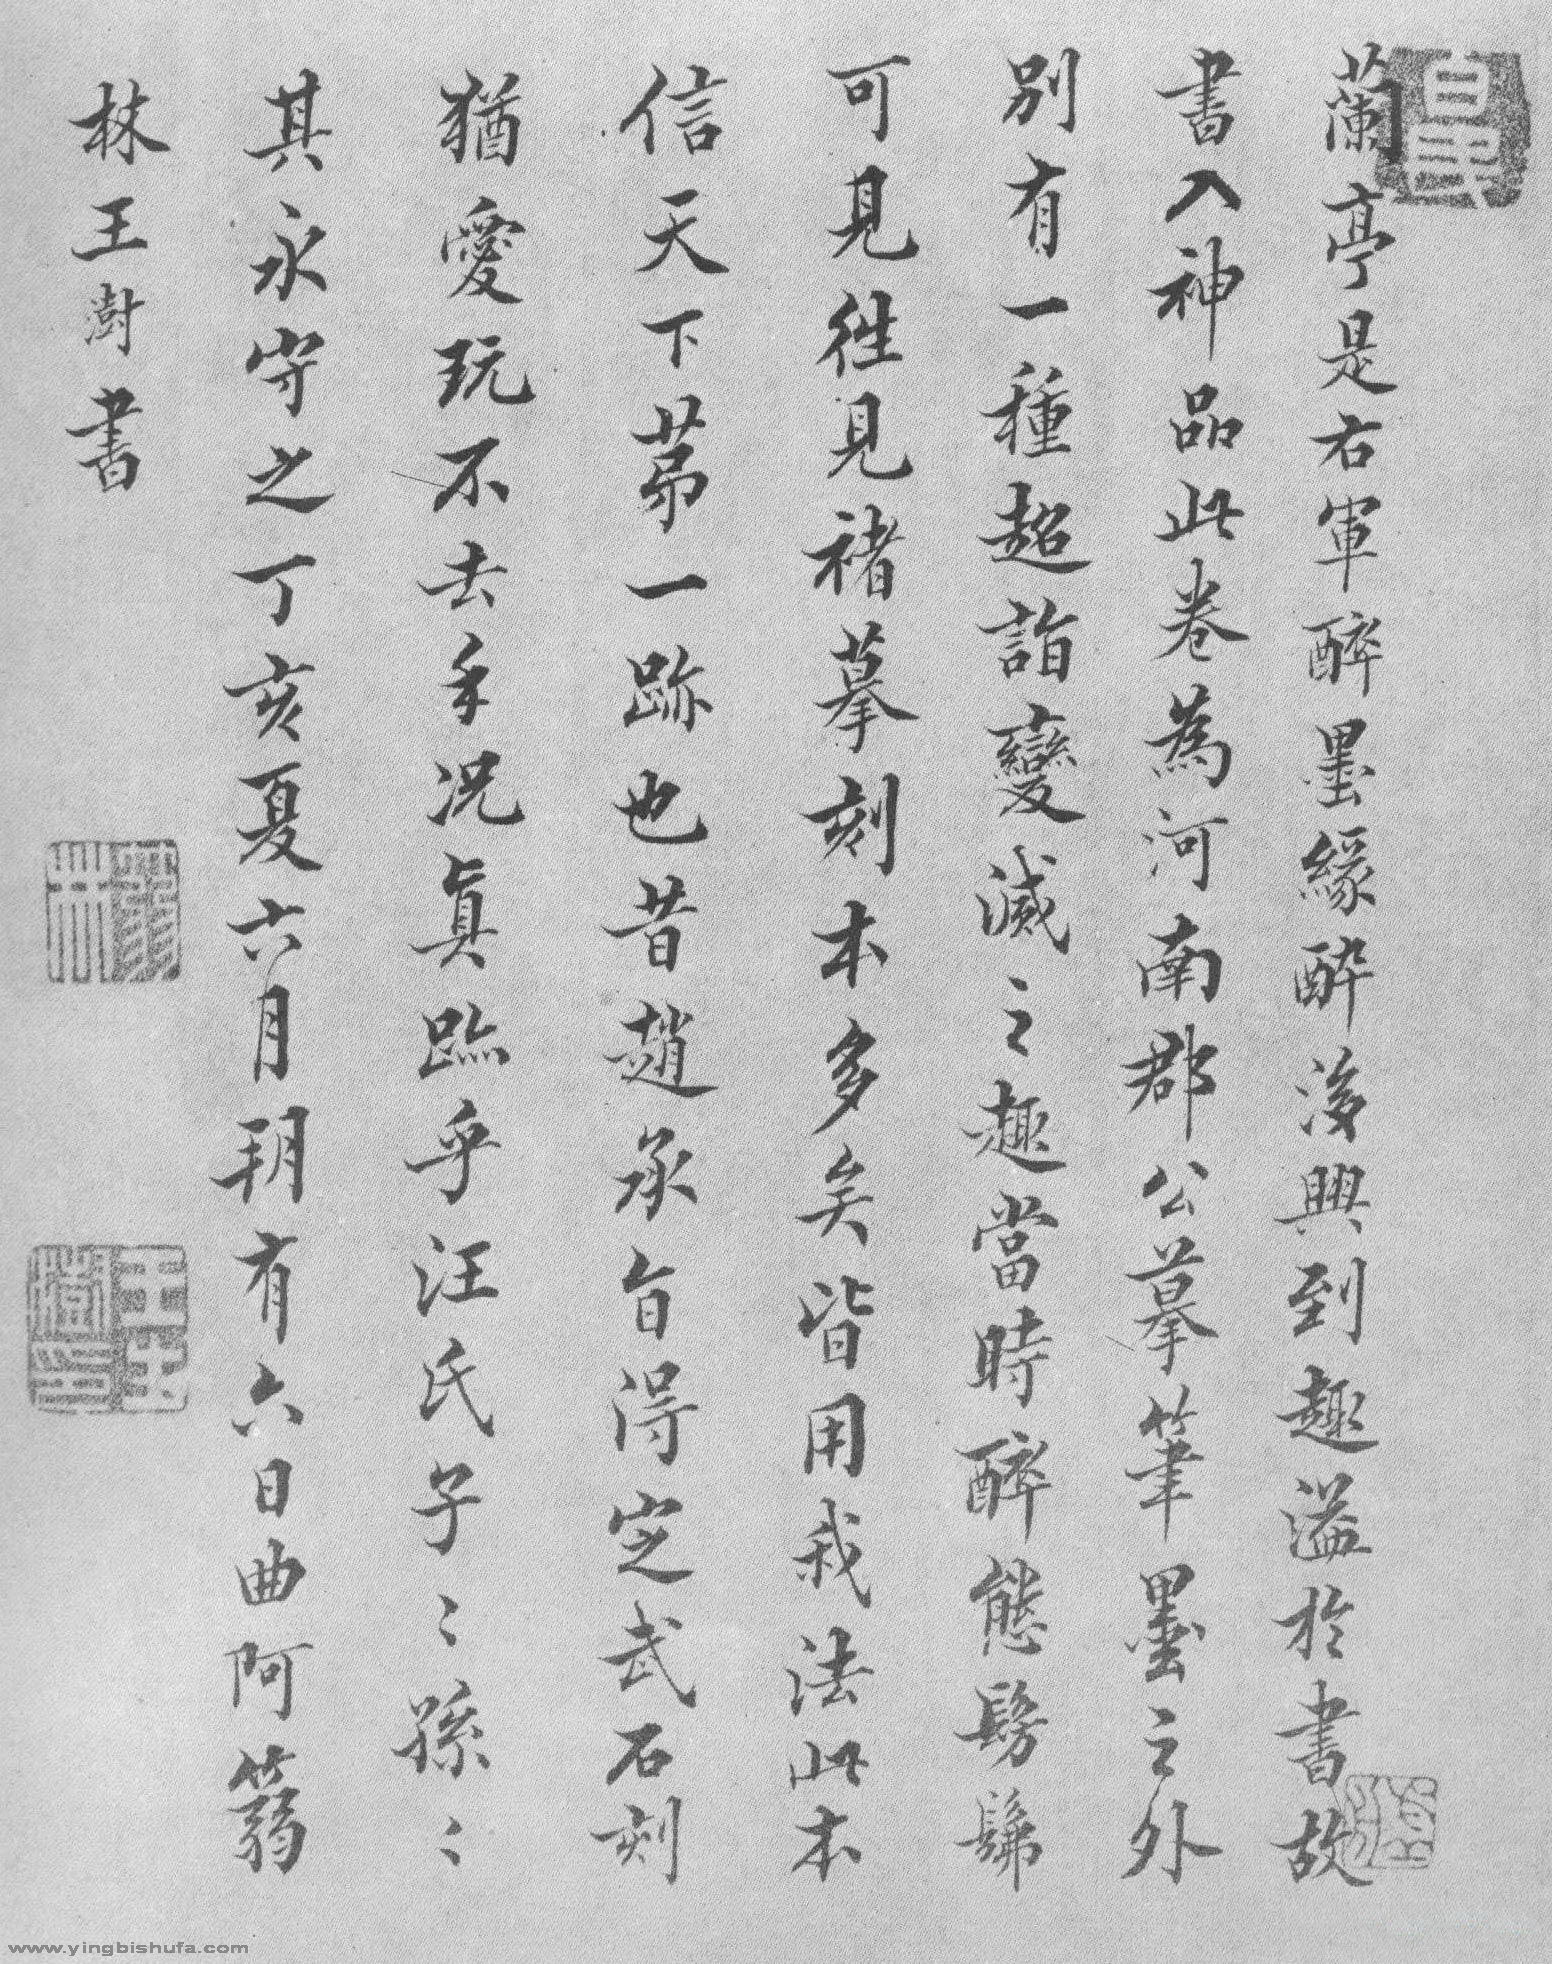 蘭亭是右軍醉墨緣醉後興到趣溢於書故
書入神品此卷為河南郡公摹筆墨之外
別有一種超詣變滅之趣當時醉態髣髴
可見往見褚摹刻本多矣皆用我法此本
信天下苐一跡也昔趙承旨得定武石刻
猶愛玩不去手況真跡乎汪氏子〻孫〻
其永守之丁亥夏六月朔有六日曲阿蒻
林王澍書
www.yingbishufa.com